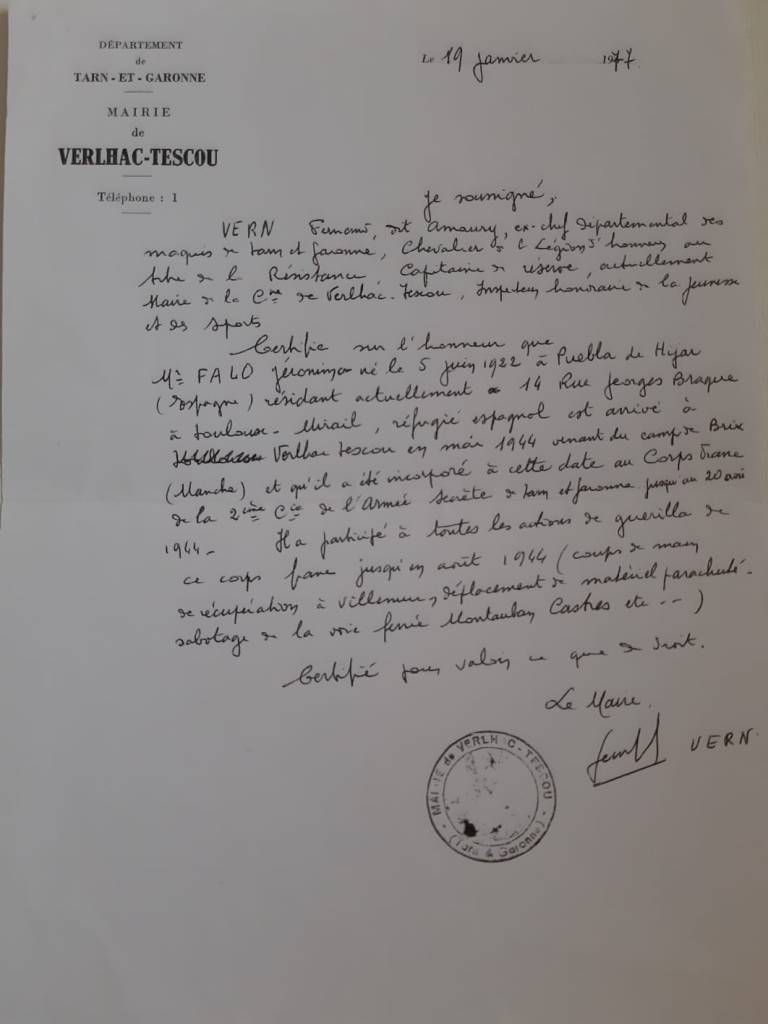 DÉPARTEMENT
de
TARN-ET-GARONNE
MAIRIE
de
VERLHAC-TESCOU
Téléphone : 1
Le 19 janvier 1977.
Je soussigné,
VERN Fernand, dit Amaury, ex-chef départemental des
maquis de Tarn et Garonne, Chevalier de la Légion d'honneur au
titre de la Résistance, Capitaine de réserve, actuellement
Maire de la Cne de Verlhac-Tescou, Inspecteur honoraire de la Jeunesse
et des Sports
Certifie sur l'honneur que
Mr FALO Jéronimo né le 5 juin 1922 à Puebla de Hijar
(Espagne) résidant actuellement 14 Rue Georges Braque
à Toulouse-Mirail, réfugié espagnol est arrivé à
Verlhac Tescou en mai 1944 venant du camp de Brix
(Manche) et qu'il a été incorporé à cette date au Corps Franc
de la 2ème Cie de l'Armée Secrète de Tarn et Garonne jusqu'au 20 août
1944 - Il a participé à toutes les actions de guerilla de
ce corps franc jusqu'en août 1944 (coups de main
de récupération à Villemur, déplacement de matériel parachuté -
sabotage de la voie ferrée Montauban Castres etc --)
Certifié pour valoir ce que de droit.
Le Maire.
VERN.
MAIRIE de VERLHAC-TESCOU
(Tarn & Garonne)